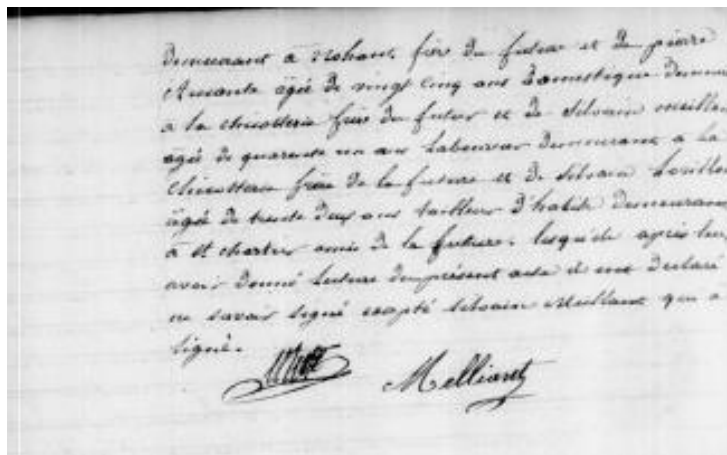 demeurant à Nohant, frère du futur et de pierre
âgé de vingt cinq ans domestique demeu
à la frère du futur et de Silvain meillan
agé de quarente un ans laboureur demeurant a la
frère de la future et de Silvain
âgé de trente deux ans tailleur d'habits demeurant
à St chartier amis de la future. lesquels après leur
avoir donné lecture du présent acte d ont declaré
ne savoir signé excepté silvain Meillant qui a
signé.
Melliaret